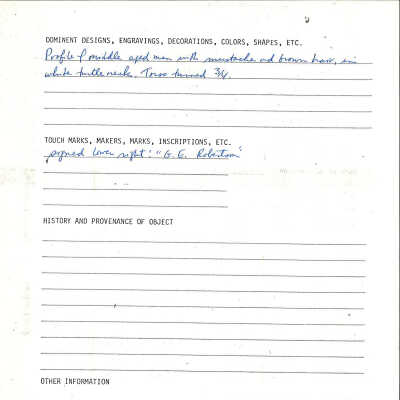 DOMINENT DESIGNS, ENGRAVINGS, DECORATIONS, COLORS, SHAPES, ETC.
Profile of middle aged man with mustache and brown hair, in
white turtle neck. Torso turned 3/4.
TOUCH MARKS, MAKERS, MARKS, INSCRIPTIONS, ETC.
signed lower right: "G. E. Robertson"
HISTORY AND PROVENANCE OF OBJECT
OTHER INFORMATION